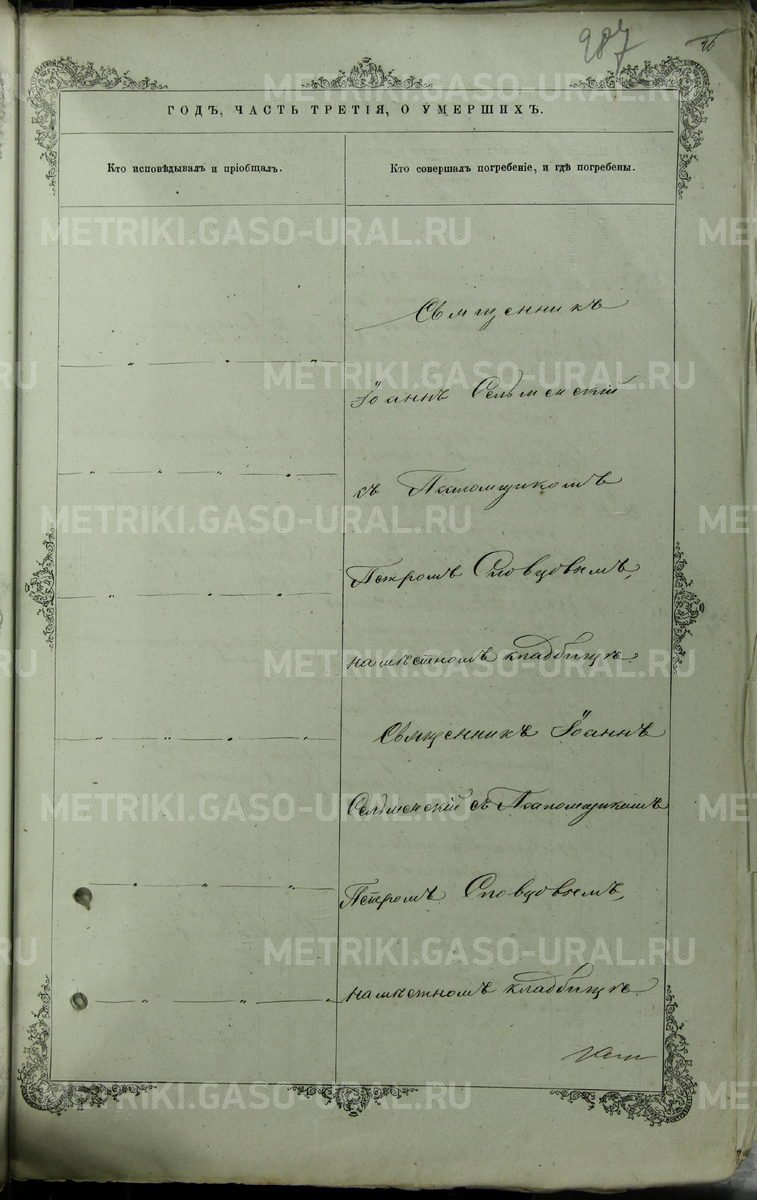 287
ГОДЪ, ЧАСТЬ ТРЕТІЯ, О УМЕРШИХЪ.
Кто исповѣдывалъ и пріобщалъ.
Кто совершалъ погребеніе, и гдѣ погребены.
Священникъ
Іоаннъ Сельменскій
съ Псаломщикомъ
Петромъ Словцовымъ,
на мѣстномъ кладбищѣ.
Священникъ Іоаннъ
Сельменскій съ Псаломщикомъ
Петромъ Словцовымъ,
на мѣстномъ кладбищѣ.
METRIKI.GASO-URAL.RU